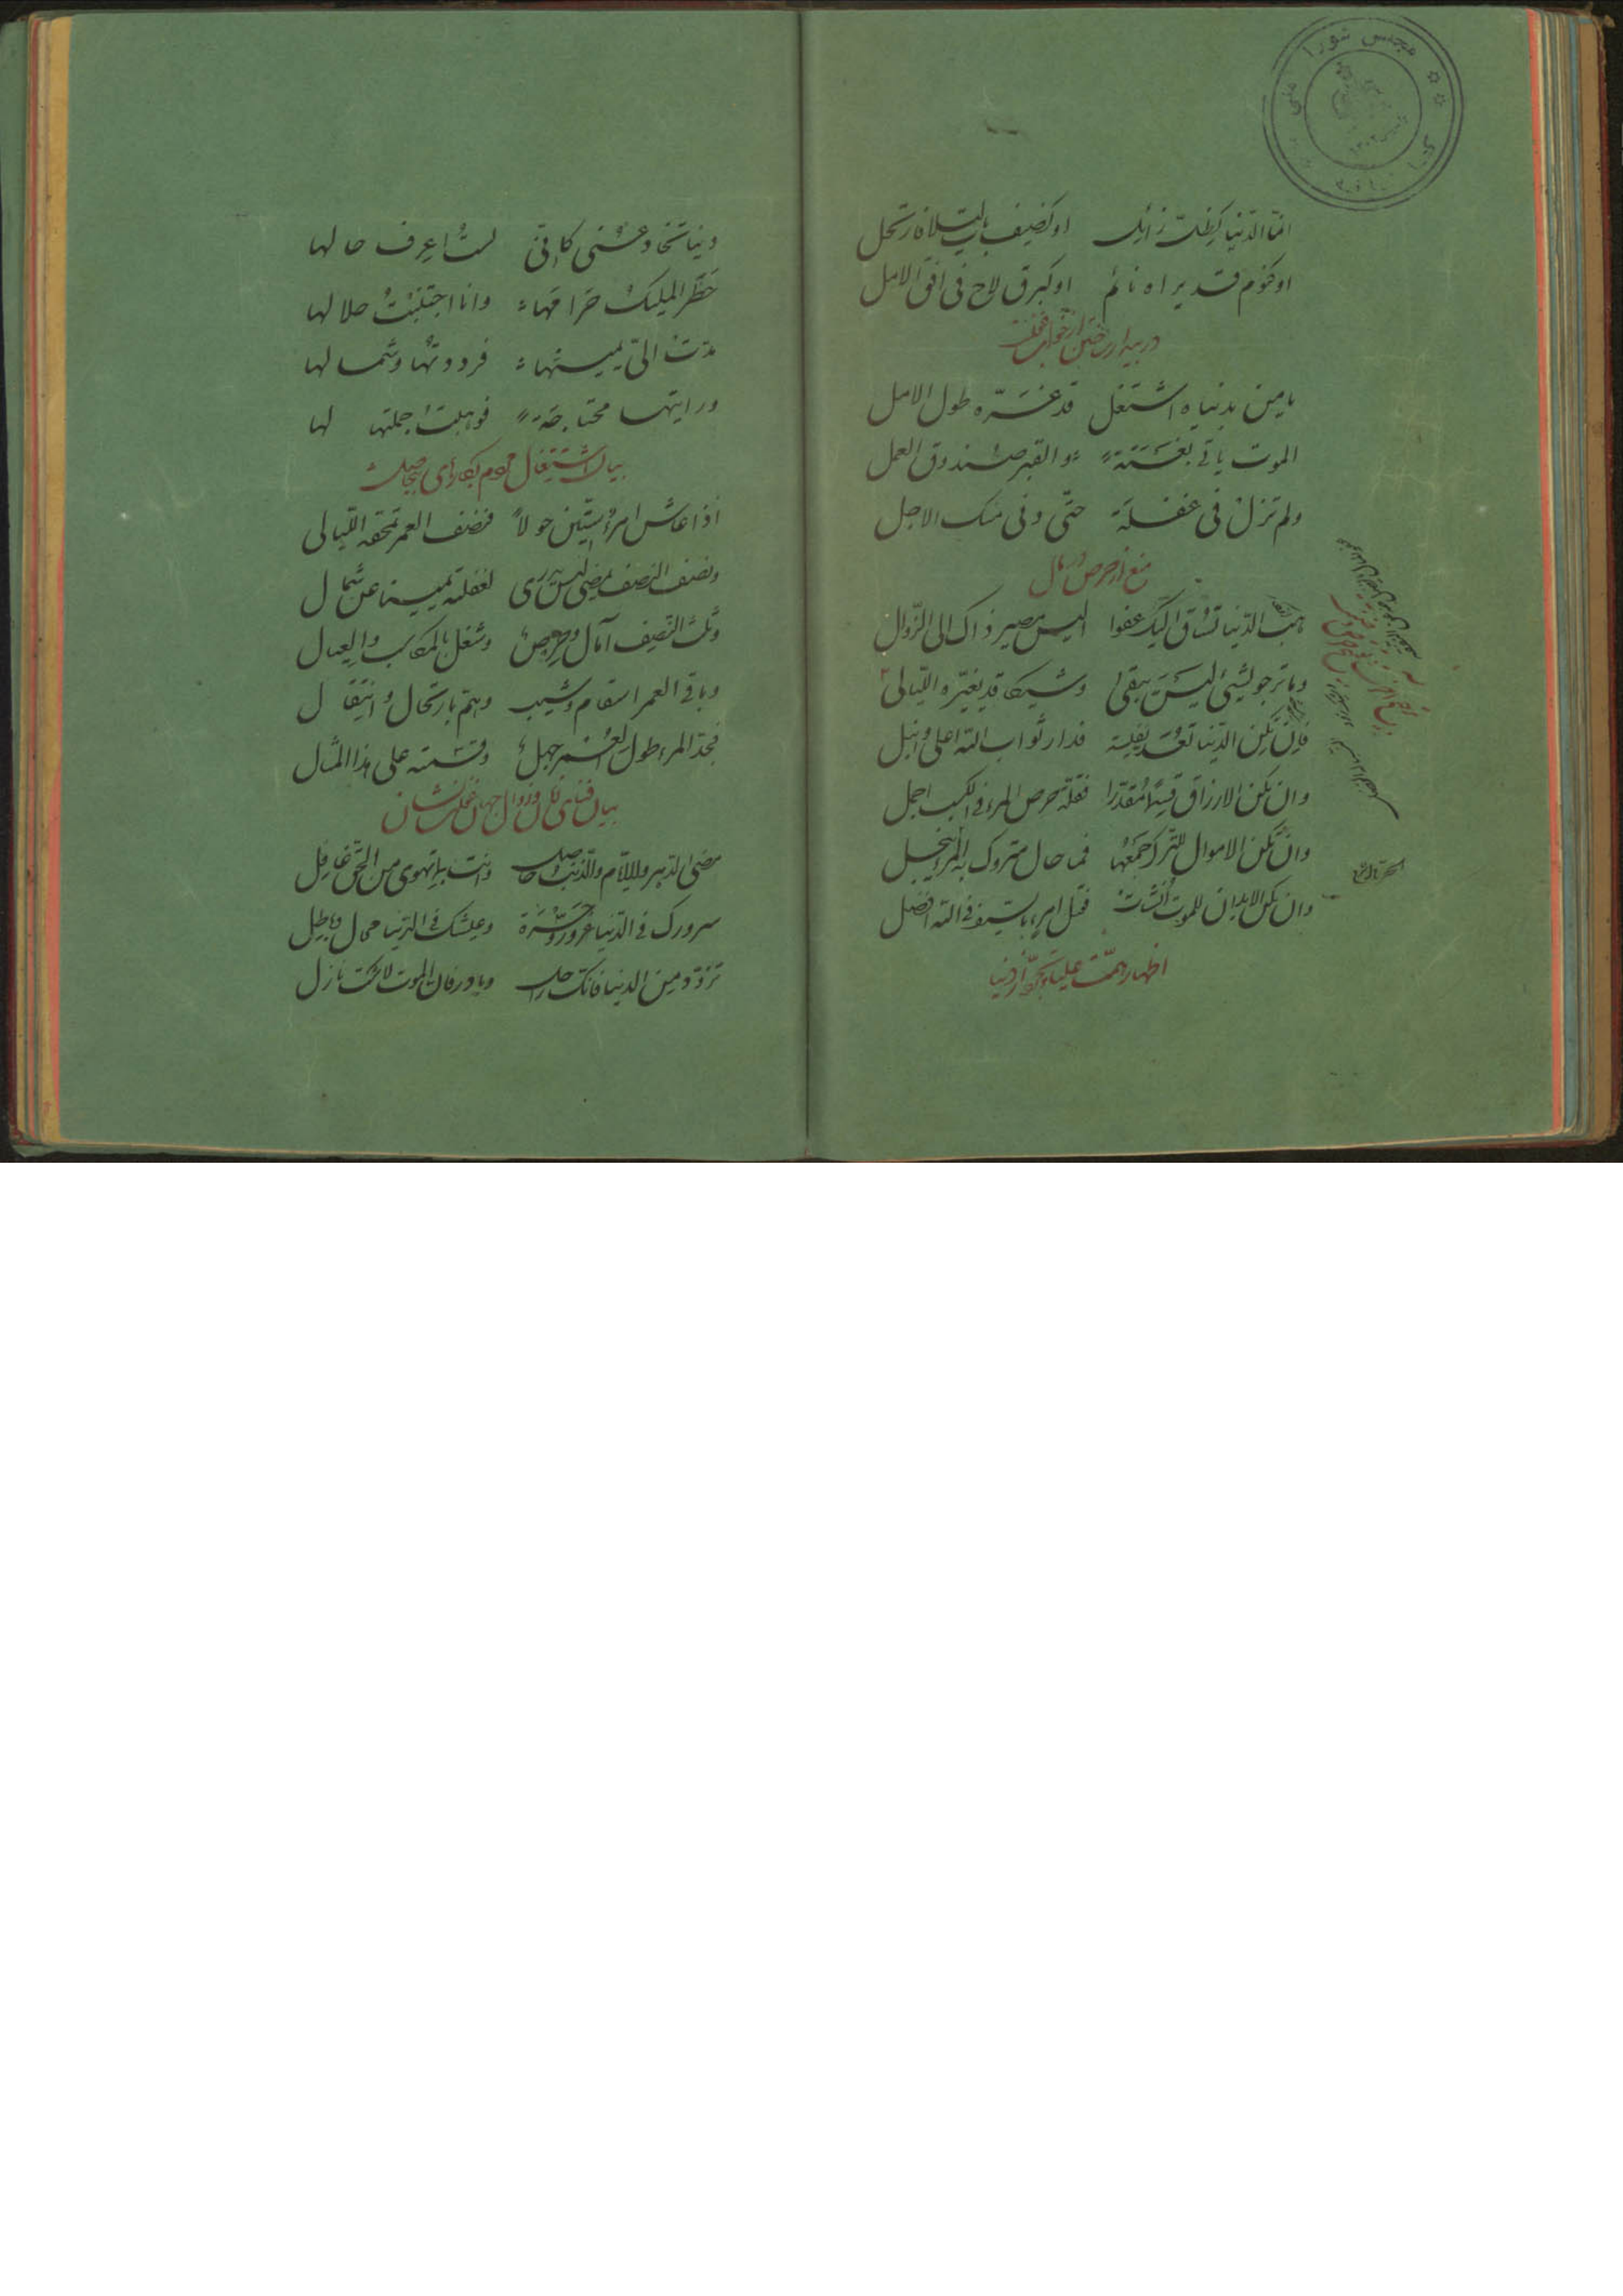 انّما الدّنیا کظلّ زائل اوکضیف بات لیلا فارتحل
اوکنوم قد یراه نائم اوکبرق لاح فی افق الامل
در بیدار ساختن از خواب غفلت
یا من بدنیاه اشتغل قد غرّه طول الامل
الموت یاتی بغتة والقبر صندوق العمل
ولم تزل فی غفلة حتّی دنی منک الاجل
منع از حرص مال
هب الدّنیا تساق الیک عفوا الیس مصیر ذاک الی الزّوال
وما ترجو لشیئ لیس یبقی وشیکا قد یغیّره اللّیالی
فان تکن الدّنیا تعدّ نفیسة فدار ثواب الله اعلی وانبل
وان تکن الارزاق قسما مقدّرا فقلّة حرص المرء فی الکسب اجمل
وان تکن الاموال للترک جمعها فما حال متروک به المرء یبخل
وان تکن الابدان للموت انشأت فقتل امرء بالسیف فی الله افضل
اظهار همّت علیا وتجرّد از دنیا
دنیا تخادعنی کانّی لست اعرف حالها
حظر الملیک حرامها وانا اجتنبت حلالها
مدّت الیّ یمینها فرددتها وشمالها
ورایتها محتاجة فوهبت جملتها لها
بیان اشتغال مردم بکارهای بیحاصل
اذا عاش امرء ستّین حولاً فنصف العمر تمحقه اللّیالی
ونصف النصف یمضی لیس یدری لغفلته یمینا عن شمال
وثلث النّصف آمال وحرص وشغل بالمکاسب والعیال
وباقی العمر اسقام وشیب وهمّ بارتحال وانتقال
فحبّ المرء طول العمر جهل وقسمته علی هذا المثال
بیان فنای کل وزوال جهان غفلت نشان
مضی الدهر والایّام والذّنب حاصل وانت بما تهوی من الحقّ غافل
سرورک فی الدّنیا غرور وحسرة وعیشک فی الدّنیا محال وباطل
تزوّد من الدنیا فانّک راحل وبادر فان الموت لا شک نازل
مجلس شورا ملی